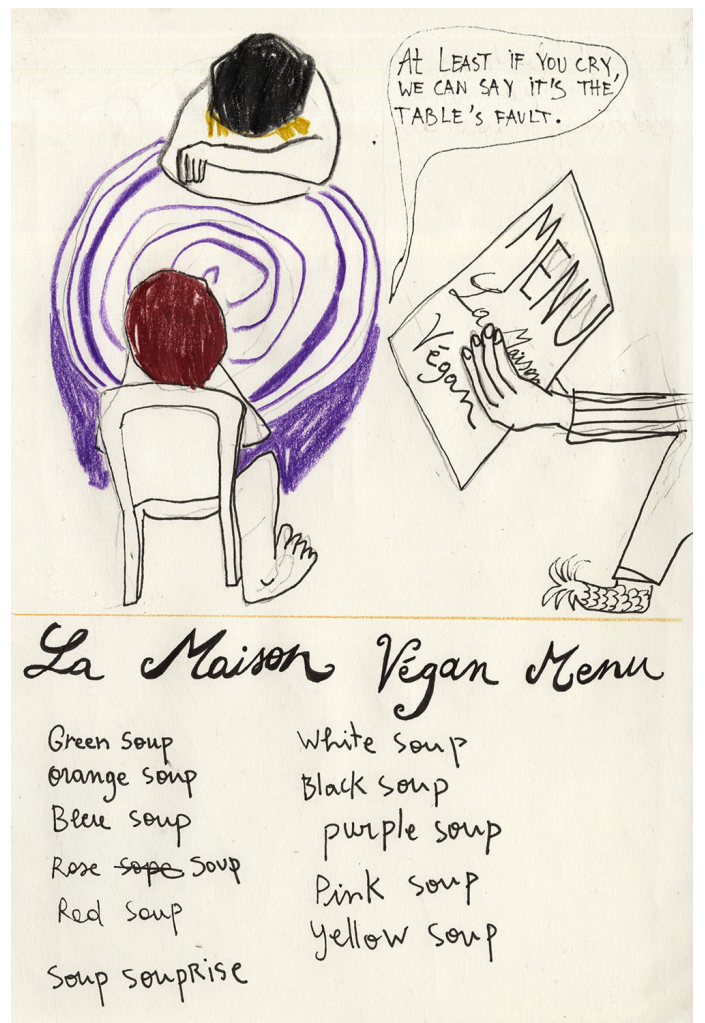 At LEAST IF YOU CRY,
WE CAN SAY IT'S THE
TABLE'S FAULT.
MENU
La Maison
Végan
La Maison Végan Menu
Green soup
orange soup
Bleue soup
Rose sope soup
Red soup
Soup souprise
White soup
Black soup
purple soup
Pink soup
yellow soup